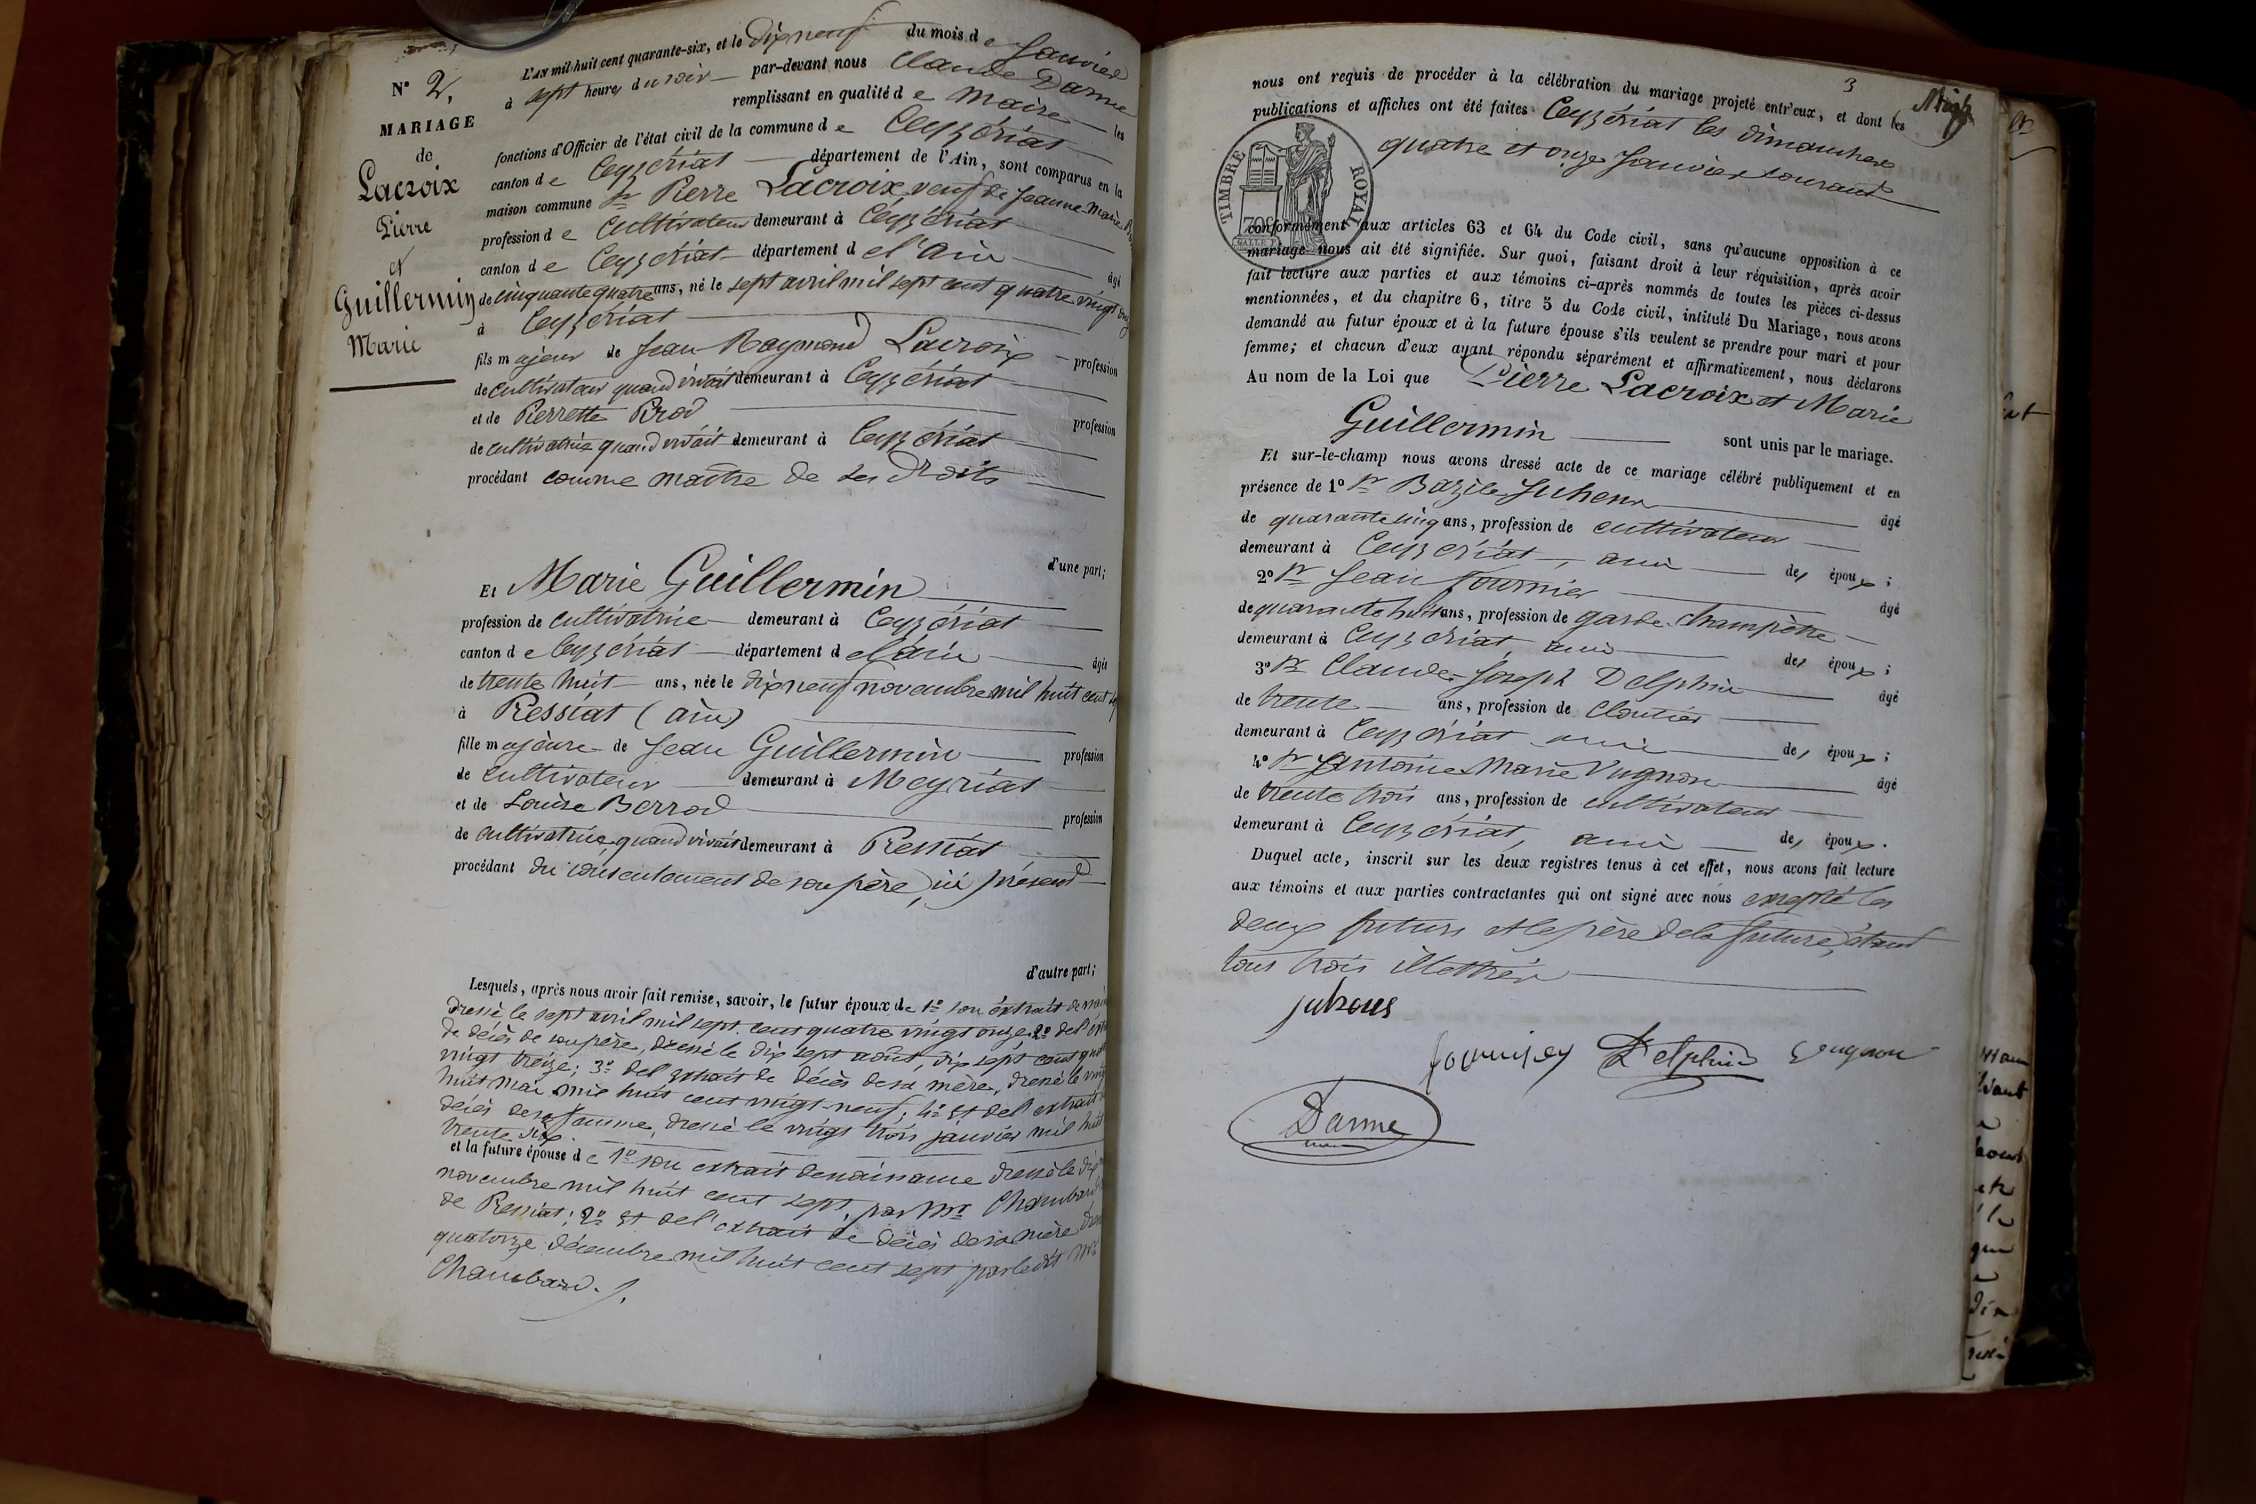 N° 2,
MARIAGE
de
Lacroix
Pierre
et
Guillermin
Marie
L'AN mil huit cent quarante-six, et le dix neuf du mois de Janvier
à sept heures du soir par-devant nous Claude Darme
remplissant en qualité de maire les
fonctions d'Officier de l'état civil de la commune de Ceyzériat
canton de Ceyzériat département de l'Ain, sont comparus en la
maison commune Sr Pierre Lacroix veuf de Jeanne Marie
profession de cultivateur demeurant à Ceyzériat
canton de Ceyzériat département de l'Ain âgé
de cinquante quatre ans, né le sept avril mil sept cent quatre vingt onze
à Ceyzériat
fils majeur de Jean Raymond Lacroix profession
de cultivateur quand vivait demeurant à Ceyzériat
et de Pierrette Brod profession
de cultivatrice quand vivait demeurant à Ceyzériat
procédant comme maître de ses droits
d'une part;
Et Marie Guillermin
profession de cultivatrice demeurant à Ceyzériat
canton de Ceyzériat département de l'ain âgée
de trente huit ans, née le dix neuf novembre mil huit cent
à Ressiat (ain)
fille majeure de Jean Guillermin profession
de cultivateur demeurant à Meyriat
et de Louise Berrod profession
de cultivatrice quand vivait demeurant à Ressiat
procédant du consentement de son père, ici présent
d'autre part;
Lesquels, après nous avoir fait remise, savoir, le futur époux de 1° son extrait de
dressé le sept avril mil sept cent quatre vingt onze 2° de l'
de décès de son père, dressé le dix sept août, dix sept cent
vingt treize; 3° del extrait de décès de sa mère, dressé le
huit mai mil huit cent vingt-neuf; 4° Et de l'extrait
décès de sa femme, dressé le vingt trois janvier mil huit
trente six
et la future épouse de 1° son extrait de naissance dressé le dix
novembre mil huit cent sept, par Mr Chambard
de Ressiat; 2° Et de l'extrait de décès de sa mère
quatorze décembre mil huit cent sept par ledit Mr
Chambard.
3
nous ont requis de procéder à la célébration du mariage projeté entr'eux, et dont les
publications et affiches ont été faites Ceyzériat les dimanches
quatre et onze Janvier courant
TIMBRE ROYAL
conformément aux articles 63 et 64 du Code civil, sans qu'aucune opposition à ce
mariage nous ait été signifiée. Sur quoi, faisant droit à leur réquisition, après avoir
fait lecture aux parties et aux témoins ci-après nommés de toutes les pièces ci-dessus
mentionnées, et du chapitre 6, titre 5 du Code civil, intitulé Du Mariage, nous avons
demandé au futur époux et à la future épouse s'ils veulent se prendre pour mari et pour
femme; et chacun d'eux ayant répondu séparément et affirmativement, nous déclarons
Au nom de la Loi que Pierre Lacroix et Marie
Guillermin sont unis par le mariage.
Et sur-le-champ nous avons dressé acte de ce mariage célébré publiquement et en
présence de 1° Sr Bazile Juhenn âgé
de quarante cinq ans, profession de cultivateur
demeurant à Ceyzériat, ami des époux;
2° Sr Jean Fournier âgé
de quarante huit ans, profession de garde-champêtre
demeurant à Ceyzériat, ami des époux;
3° Sr Claude-Joseph Delphin âgé
de trente ans, profession de cloutier
demeurant à Ceyzériat ami des époux;
4° Sr Antoine Marie Vugnon âgé
de trente trois ans, profession de cultivateur
demeurant à Ceyzériat, ami des époux.
Duquel acte, inscrit sur les deux registres tenus à cet effet, nous avons fait lecture
aux témoins et aux parties contractantes qui ont signé avec nous excepté les
deux futurs et le père de la future, étant
tous trois illettrés
Delphin
Darme